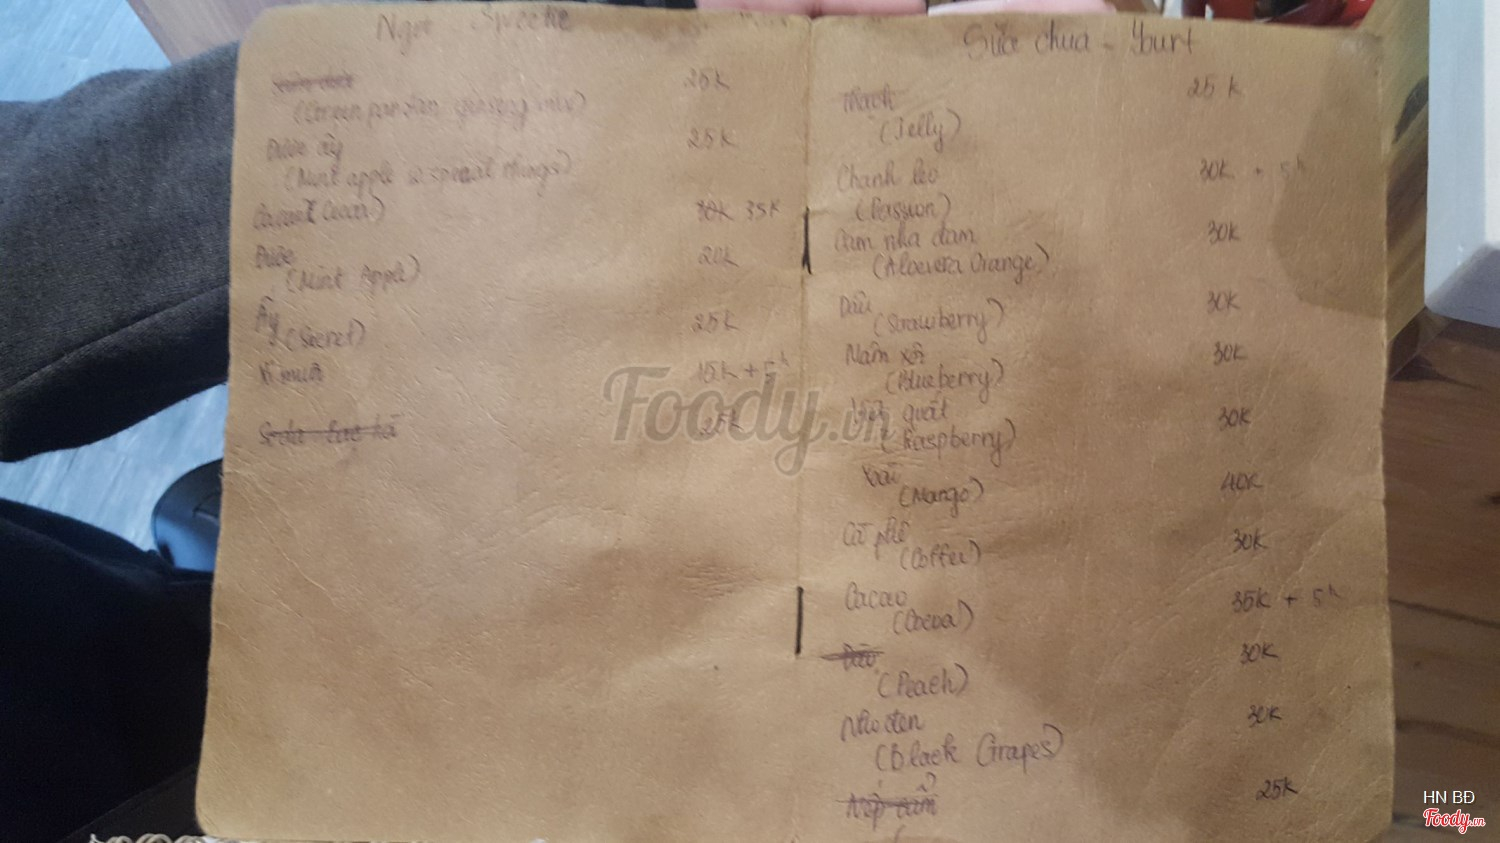 Ngọt
25K
(Green pandan ginseng mix)
Được ấy
25K
(Mint apple w special things)
Cacao (Cocoa)
30K 35K
Được
(Mint Apple)
20K
Ấy
(Secret)
25K
Bí mưa
15K + 5k
Soda bạc hà
25K
Sữa chua - Yourt
Thạch
25K
(Jelly)
Chanh leo
30K + 5k
(Passion)
Cam nha đam
30K
(Aloevera Orange)
Dâu
30K
(Strawberry)
Nấm xôi
30K
(Blueberry)
Việt quất
30K
(Raspberry)
Xoài
40K
(Mango)
Cà phê
30K
(Coffee)
Cacao
35K + 5k
(Cocoa)
Đào
30K
(Peach)
Nho đen
30K
(Black Grapes)
Nếp cẩm
25K
Foody.vn
HN BĐ
Foody.vn